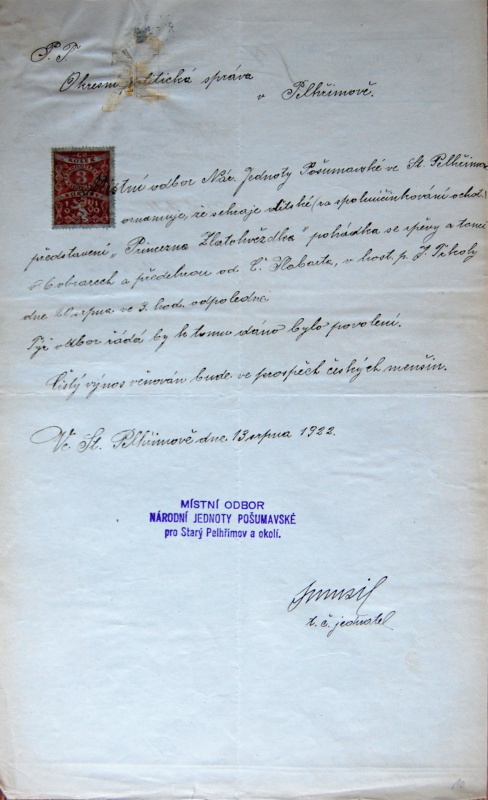 P. T.
Okresní politická správa
v Pelhřimově.
KOLEK
3
Místní odbor Nár. Jednoty Pošumavské ve St. Pelhřimově
oznamuje, že sehraje dětské (za spoluúčinkování ochot.)
představení „Princezna Zlatohvězdka" pohádka se zpěvy a tanci
o 6 obrazech a předehrou od Č. Hobarta, v host. p. J.
dne 20 srpna ve 3. hod. odpoledne.
Týž odbor žádá by k tomu dáno bylo povolení.
Čistý výnos věnován bude ve prospěch českých menšin.
Ve St. Pelhřimově dne 13 srpna 1922.
MÍSTNÍ ODBOR
NÁRODNÍ JEDNOTY POŠUMAVSKÉ
pro Starý Pelhřimov a okolí.
t. č. jednatel